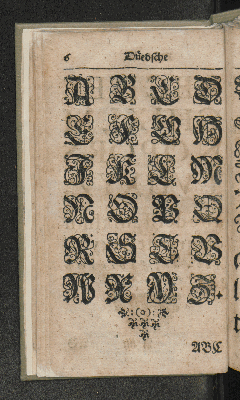 6 Duͤedsche
A B C D
E F G H
I K L M
N O P Q
R S T V
W X Y Z.
:(o):
ABC